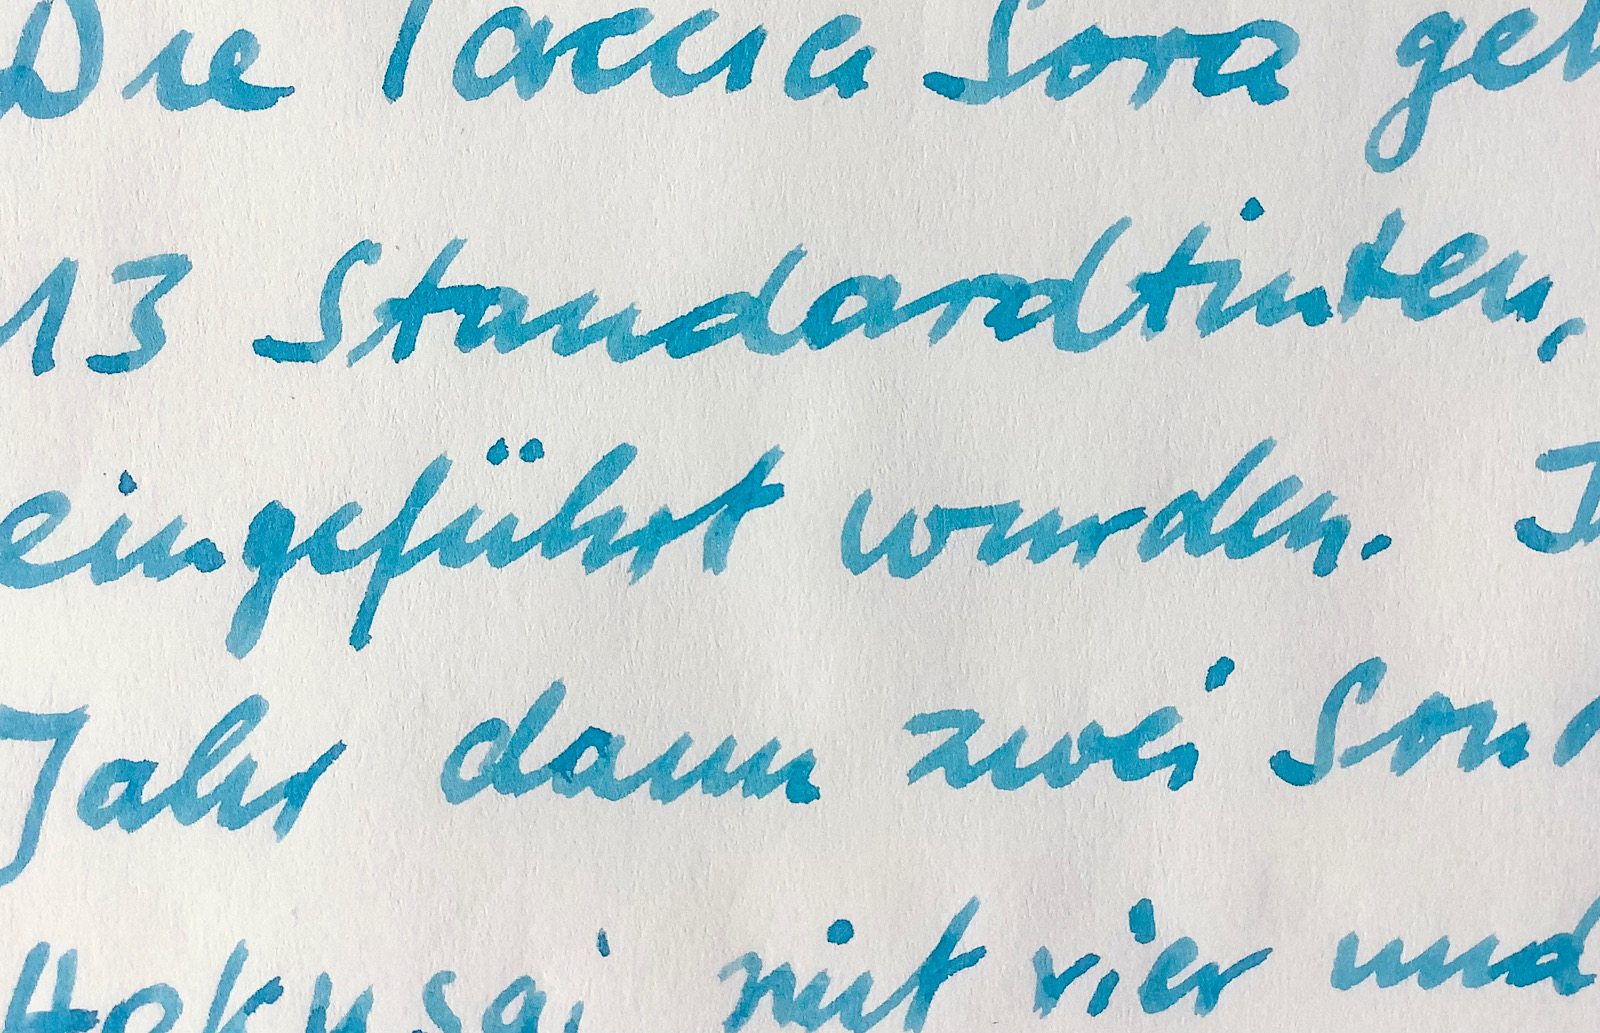 Die Taccia Sora geh
13 Standardtinten,
eingeführt wurden. I
Jahr dann zwei Sond
Hokusai mit vier und